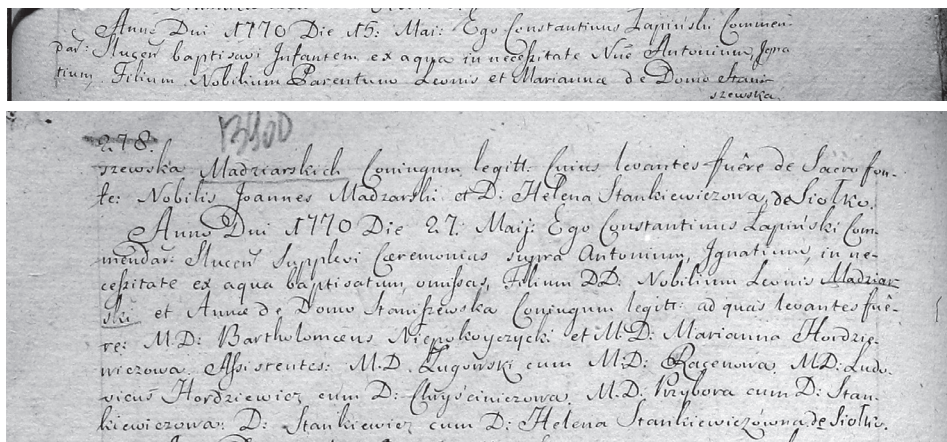 Anno Dni 1770 Die 15: Maii: Ego Constantinus Łapiński Commen-
dar: Slucen baptisavi Infantem ex aqua in necessitate Nõe Antonium, Igna
tium Filium Nobilium Parentum Leonis et Mariannæ de Domo Stani-
szewska
278.
szewska Madziarskich Coniugum legitt: Cuius levantes fuêre de Sacro fon-
te: Nobilis Joannes Madzarski et D. Helena Stankiewiczowa, de Siołko.
Anno Dni 1770 Die 27: Maij: Ego Constantinus Łapiński Com-
mendar: Slucen Supplevi Cæremonias supra Antonium, Ignatium, in ne-
ceſsitate ex aqua baptisatum, omiſsas, Filium DD. Nobilium Leonis Madziar
ski et Annæ de Domo Staniſzewska Coniugum legitt: ad quas levantes fuê-
re: M.D: Bartholomeus Niepokoyczycki et M.D: Marianna Hordzie-
wiczowa. Aſsistentes: M.D. Ługowski cum M:D: Racenowa, M.D: Ludo-
vicus Hordziewicz cum D: M.D. Przybora cum D: Stan-
kiewiczowa: D: Stankiewicz cum D: Helena Stankiewiczówna, de Siołko.